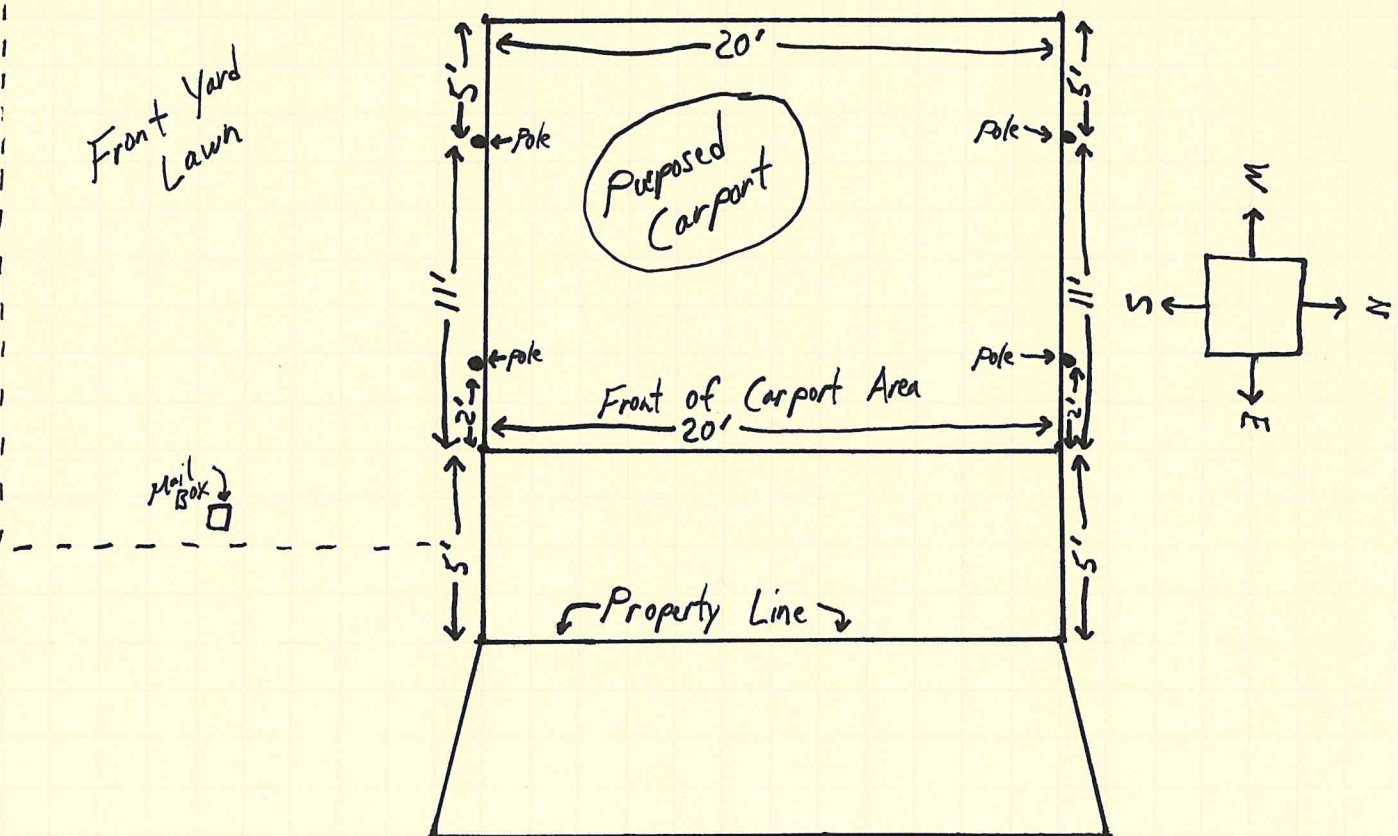 20'
5'
5'
Front Yard
Lawn
←Pole
Pole→
Purposed
Carport
W
S
N
E
11'
11'
←Pole
Pole→
Front of Carport Area
20'
2'
2'
Mail
Box
5'
5'
Property Line